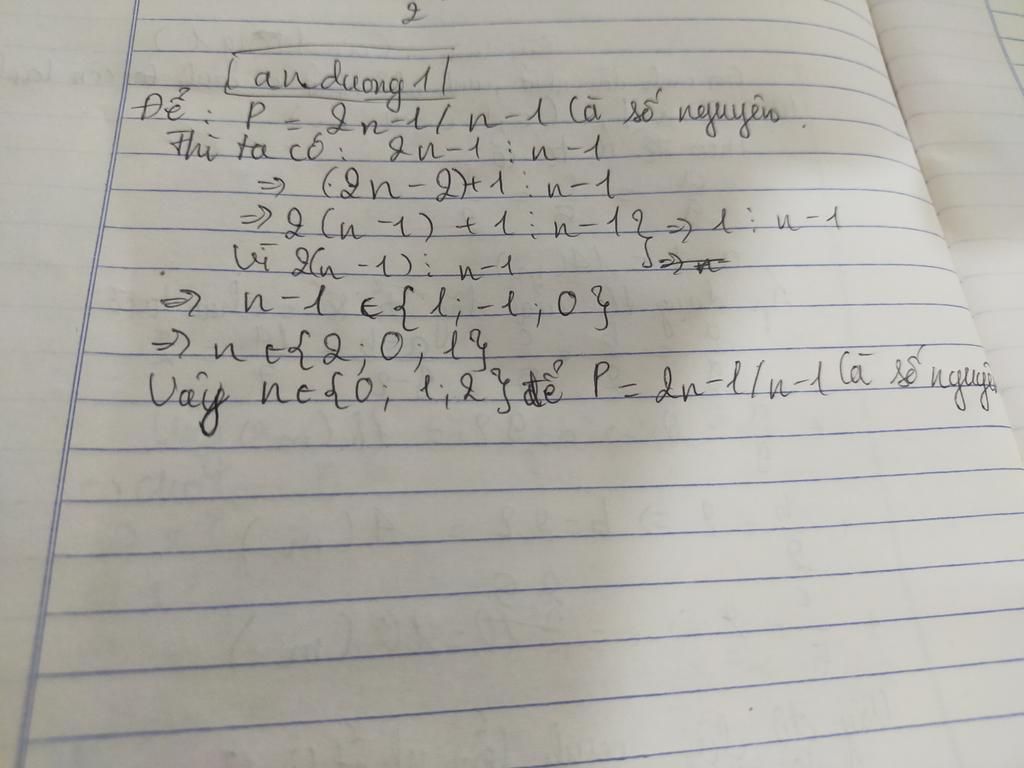 2
an duong 1
Để: P = 2n-1/n-1 là số nguyên.
Thì ta có: 2n-1 ⋮ n-1
=> (2n-2)+1 ⋮ n-1
=> 2(n-1) + 1 ⋮ n-1 } => 1 ⋮ n-1
Vì 2(n-1) ⋮ n-1
=> n-1 ∈ {1; -1; 0}
=> n ∈ {2; 0; 1}
Vậy n ∈ {0; 1; 2} để P = 2n-1/n-1 là số nguyên